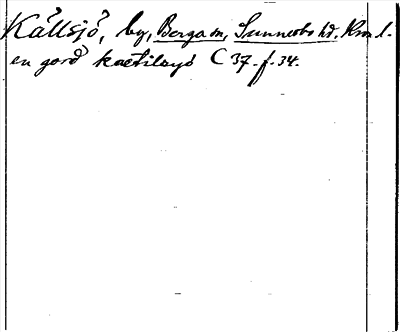 Källsjö, by, Berga sn, Sunnerbo hd. Kron. l.
en gord kaetiløyö C 37. f. 34.